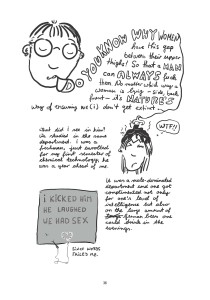 DO YOU KNOW WHY WOMEN
have this gap
between their upper
thighs? So that a MAN
can ALWAYS fuck
them. No matter which way a
woman is lying - side, back,
front - it's NATURE'S
way of ensuring we (i) don't get extinct.
What did I see in him?
We studied in the same
department. I was a
freshman, just enrolled
for my first semester of
chemical technology, he
was a year ahead of me.
(WTF!!)
It was a male-dominated
department and one got
complimented not only
for one's level of
intelligence but also
on the large amount of
beer one
could drink in the
evenings.
i KICKED HIM
HE LAUGHED
WE HAD SEX
SINCE WORDS
FAILED ME.